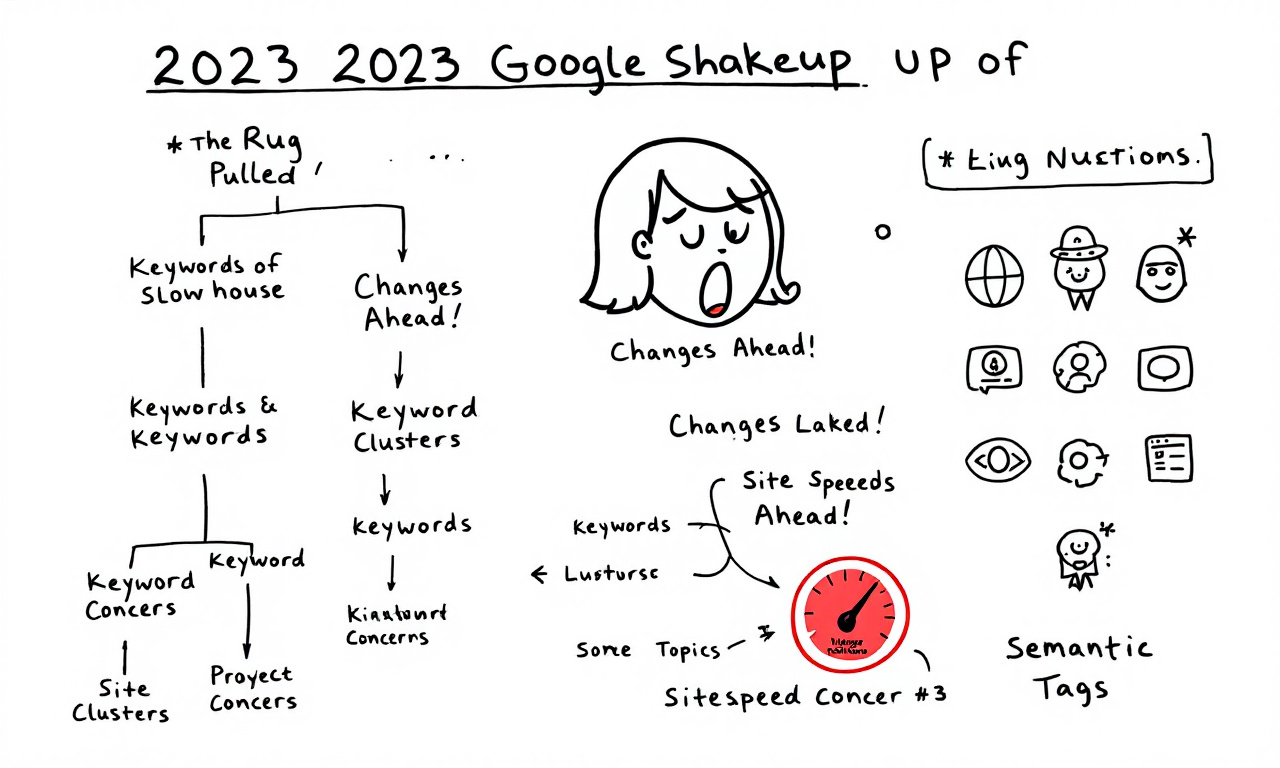 2023 2023 Google Shakeup up of
* The Rug
Pulled
Keywords of
Slow house
Keywords &
Keywords
Keyword
Keyword
Concers
Site
Clusters
Proyect
Concers
Changes
Ahead!
Keyword
Clusters
Keywords
Concerns
Changes Ahead!
Changes Laked!
Site Speeeds
Ahead!
Keywords
Lusturse
Some Topics
Sitespeed Concer #3
* Eing Nuctioms.
Semantic
Tags